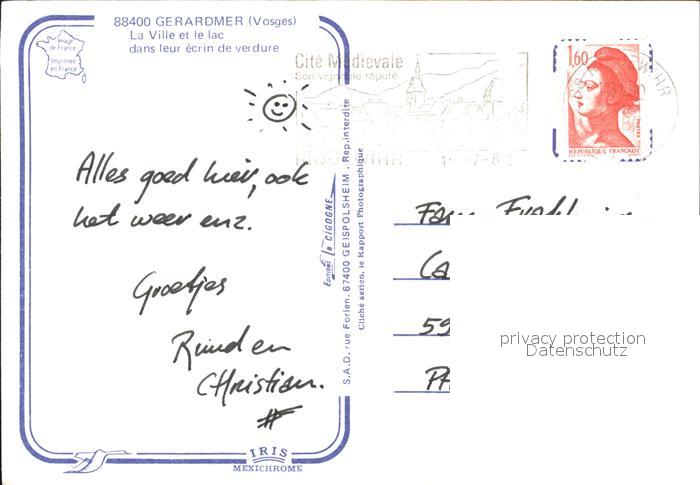 88400 GERARDMER (Vosges)
La Ville et le lac
dans leur écrin de verdure
Image
de France
Imprimée
en France
Cité Médiévale
Son vignoble réputé
1,60
REPUBLIQUE FRANÇAISE
Postes
Alles goed hier, ook
het weer enz.
Groetjes
Ruud en
CHristian.
EDITIONS la CIGOGNE
S.A.D. rue Forlen. 67400 GEISPOLSHEIM. Rep. interdite
Cliché aerien, le Rapport Photographique
Fam.
Ca
59
PA
privacy protection
Datenschutz
IRIS
MEXICHROME